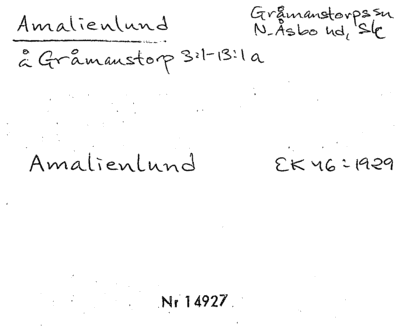 Amalienlund
Gråmanstorps sn
N. Åsbo hd, Sk
å Gråmanstorp 3:1-13:1a
Amalienlund EK 46:1929
Nr 14927